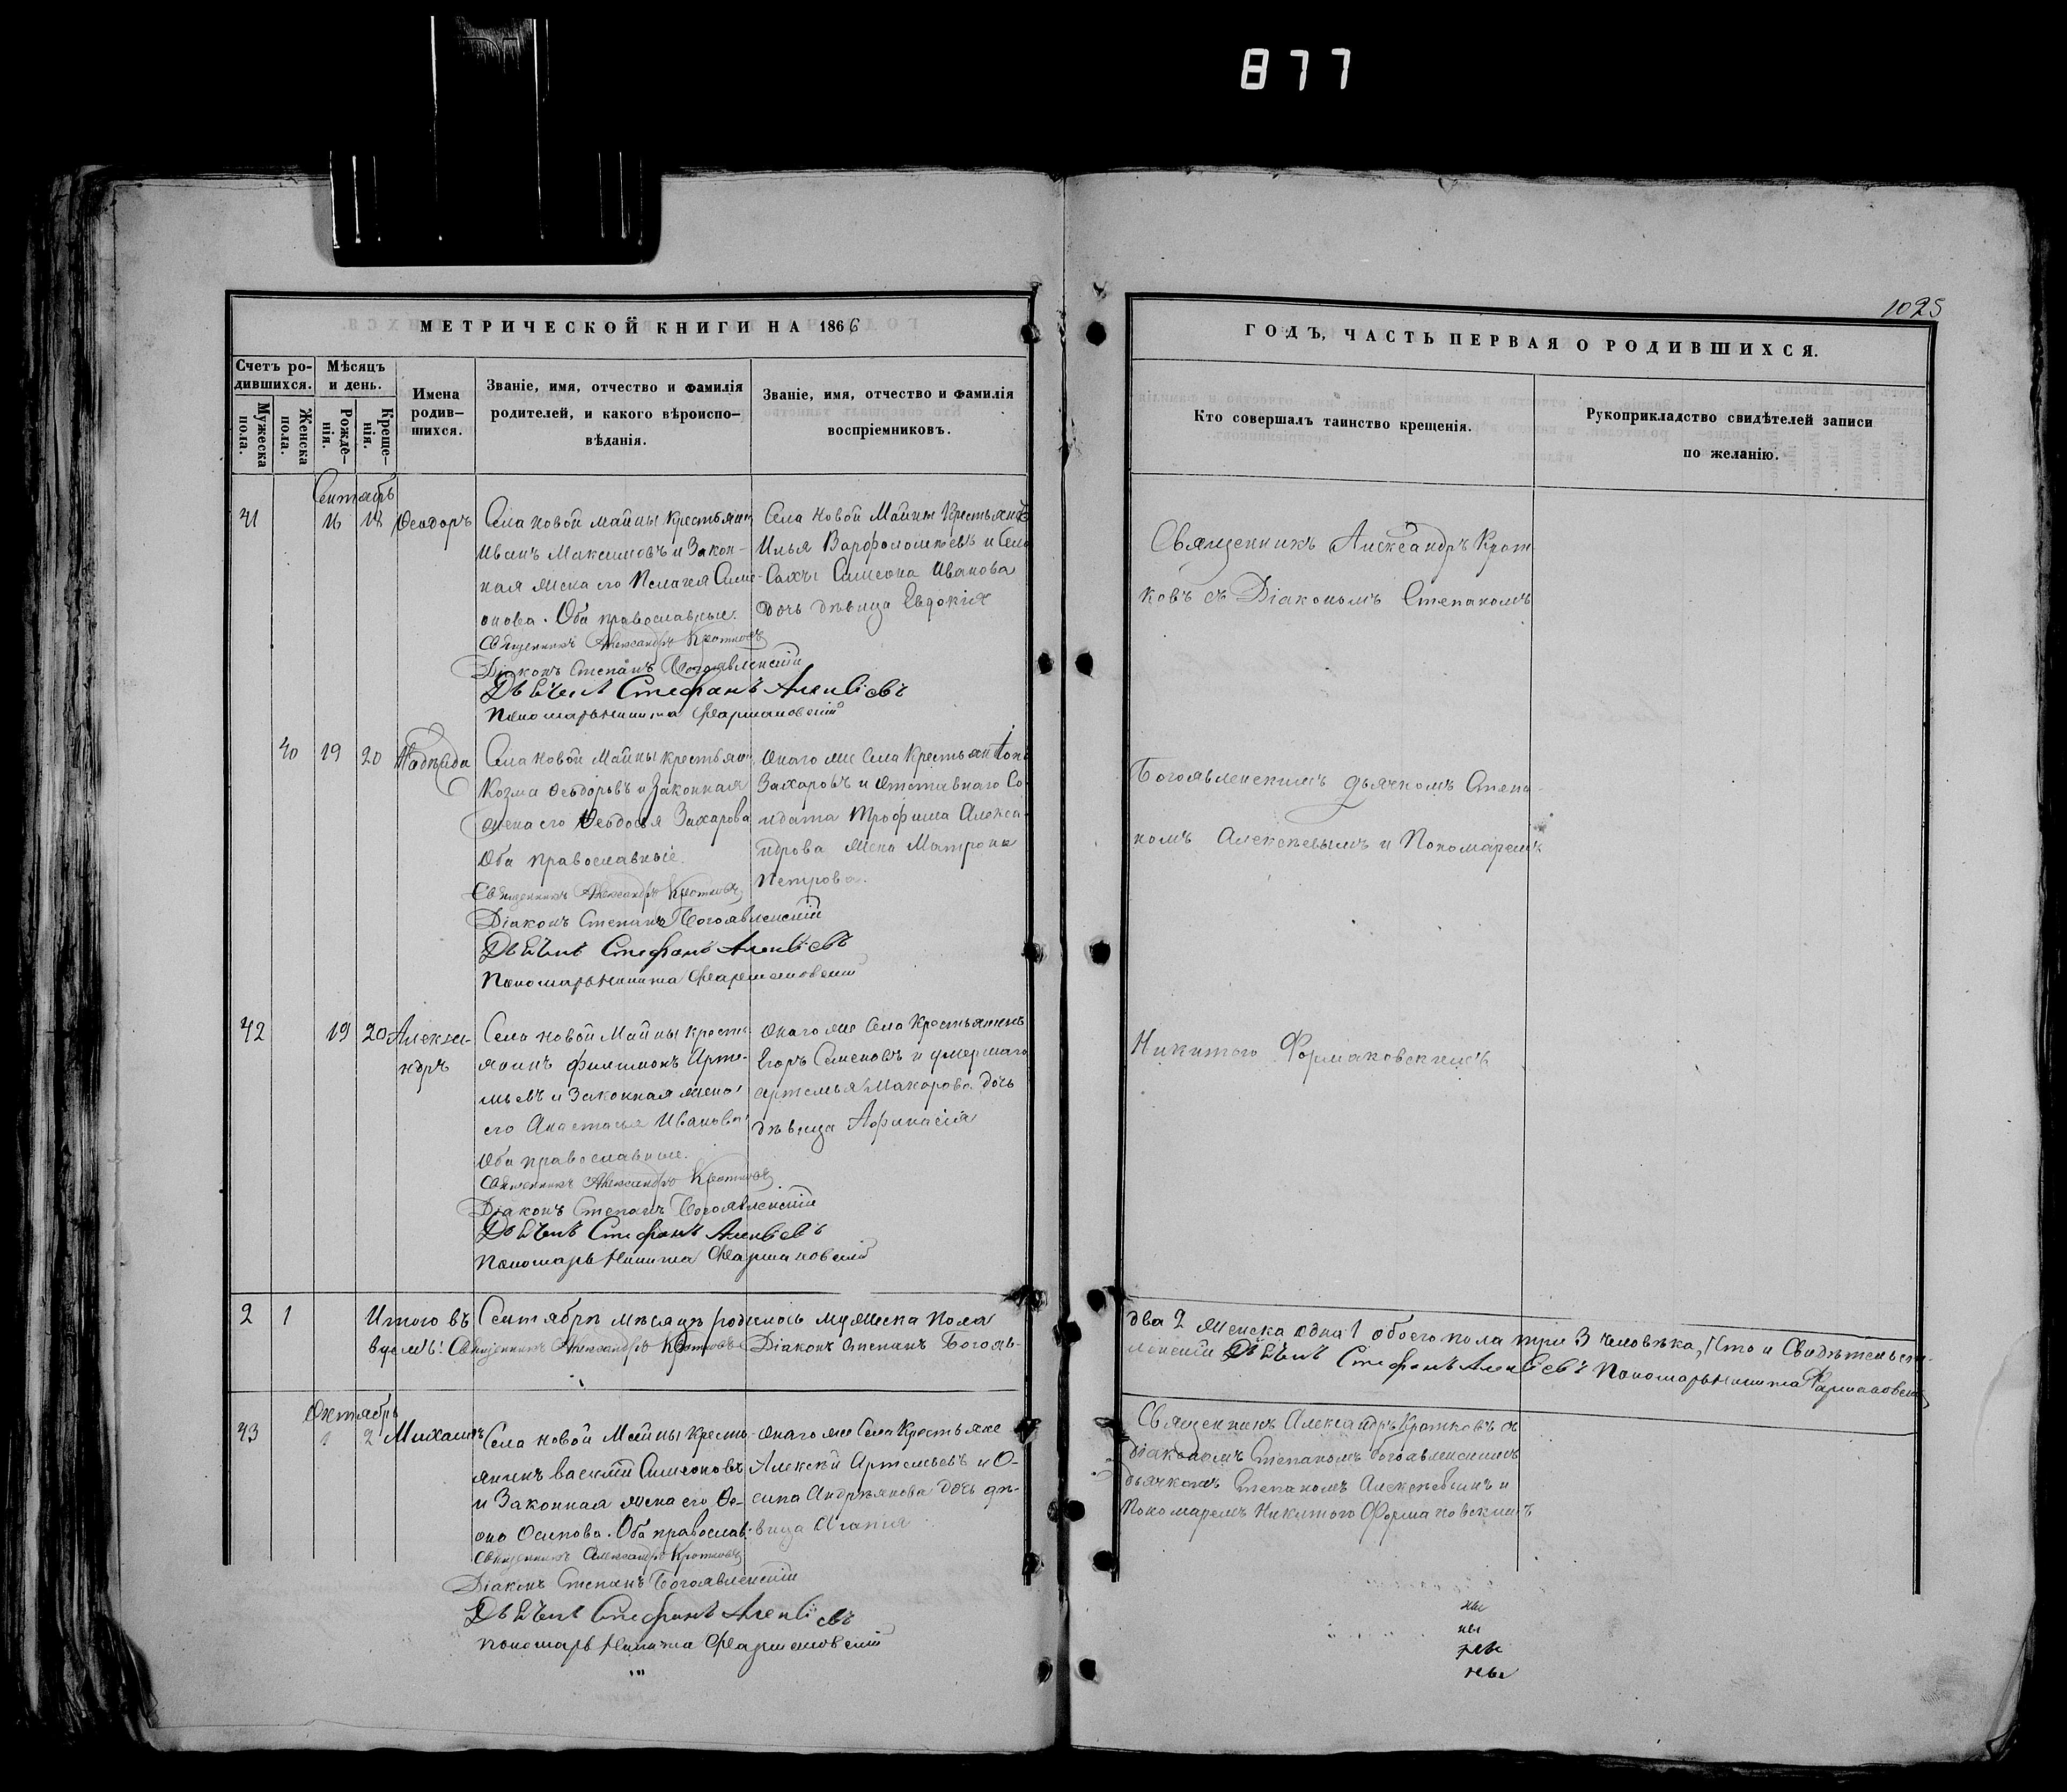 877
1025
МЕТРИЧЕСКОЙ КНИГИ НА 1866
Счетъ ро-
дившихся.
Мужеска
пола.
Женска
пола.
Мѣсяцъ
и день.
Рожде-
нія.
Креще-
нія.
Имена
родив-
шихся.
Званіе, имя, отчество и фамилія
родителей, и какого вѣроиспо-
вѣданія.
Званіе, имя, отчество и фамилія
воспріемниковъ.
Сентябрь
41 16 18 Ѳеодоръ
Села Новой Майны Крестьянин
Иванъ Максимовъ и Закон-
ная жена его Пелагея Симе-
онова. Оба православные.
Священникъ Александръ Кротковъ
Діаконъ Степанъ Богоявленскій
Дьячекъ Стефанъ Алексѣевъ
Пономарь Никита Фармаковскій
Села Новой Майны Крестьянинъ
Илья Варфоломѣевъ и Села
Сахчи Симеона Иванова
дочь дѣвица Евдокія
40 19 20 Надѣжда
Села Новой Майны крестьянин
Козма Ѳеодоровъ и Законная
жена его Ѳеодосья Захарова
Оба православные.
Священникъ Александръ Кротковъ
Діаконъ Степанъ Богоявленскій
Дьячекъ Стефанъ Алексѣевъ
Пономарь Никита Фармаковскій
Онаго же Села Крестьян
Захаровъ и отставнаго Со-
лдата Трофима Алекса-
ндрова жена Матрона
Петрова.
42 19 20 Алекса-
ндръ
Села Новой Майны кресть-
янинъ Филимонъ Арте-
мьевъ и Законная жена
его Анастасья Иванова
Оба православные.
Священникъ Александръ Кротковъ
Діаконъ Степанъ Богоявленскій
Дьячекъ Стефанъ Алексѣевъ
Пономарь Никита Фармаковскій
Онаго же Села Крестьянинъ
Егоръ Семеновъ и умершаго
Артемья Макарова дочь
дѣвица Афанасія
2 1 Итого въ Сентябрѣ мѣсяцѣ родилось мужеска пола
Священникъ Александръ Кротковъ Діаконъ Степанъ Богояв-
Октябрь
43 1 2 Михаилъ
Села Новой Майны Кресть-
янинъ Василій Симеоновъ
и Законная жена его Ѳе-
Осипова. Оба православ.
Священникъ Александръ Кротковъ
Діаконъ Степанъ Богоявленскій
Дьячекъ Стефанъ Алексѣевъ
Пономарь Никита Фармаковскій
Онаго же Села Крестьяне
Алексѣй Артемьевъ и О-
сипа Андреянова дочь дѣ-
вица Агапія
ГОДЪ, ЧАСТЬ ПЕРВАЯ О РОДИВШИХСЯ.
Кто совершалъ таинство крещенія.
Рукоприкладство свидѣтелей записи
по желанію.
Священникъ Александръ Крот-
ковъ съ Діакономъ Степаномъ
Богоявленскимъ дьячкомъ Степа-
номъ Алексѣевымъ и Пономаремъ
Никитою Формаковскимъ
два 2 женска одна 1 обоего пола три 3 человѣка, Что и Свидѣтельств-
ленскій Дьячекъ Стефанъ Алексѣевъ Пономарь Никита Фармаковскій
Священникъ Александръ Кротковъ съ
діакономъ Степаномъ Богоявленскимъ
дьячкомъ Степаномъ Алексѣевымъ и
Пономаремъ Никитою Формаковскимъ